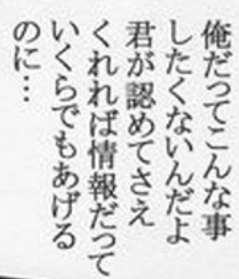 俺だってこんな事
したくないんだよ
君が認めてさえ
くれれば情報だって
いくらでもあげる
のに…